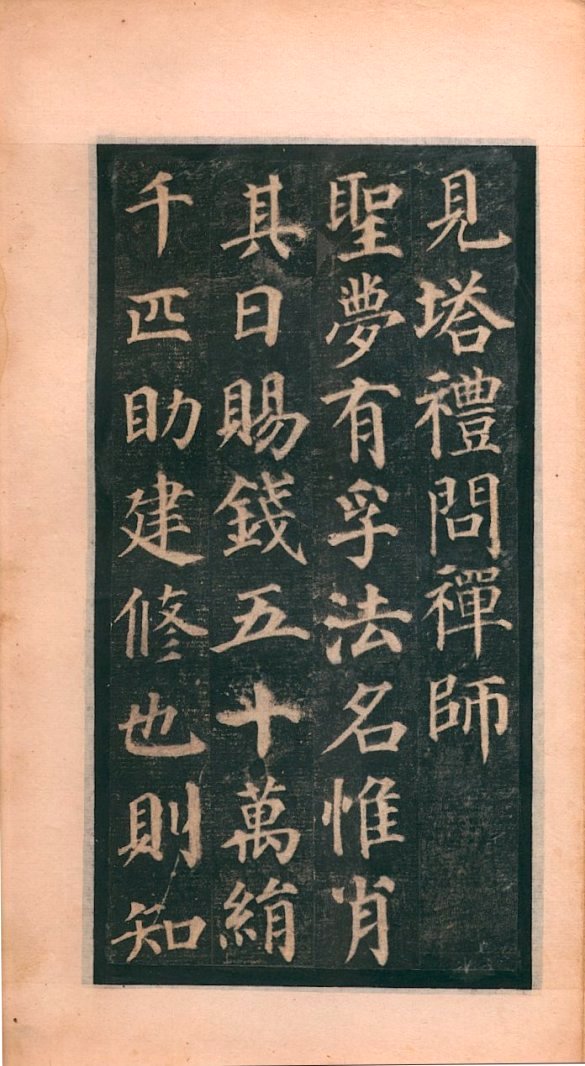 見塔禮問禪師
聖夢有孚法名惟肖
其日賜錢五十萬絹
千匹助建修也則知